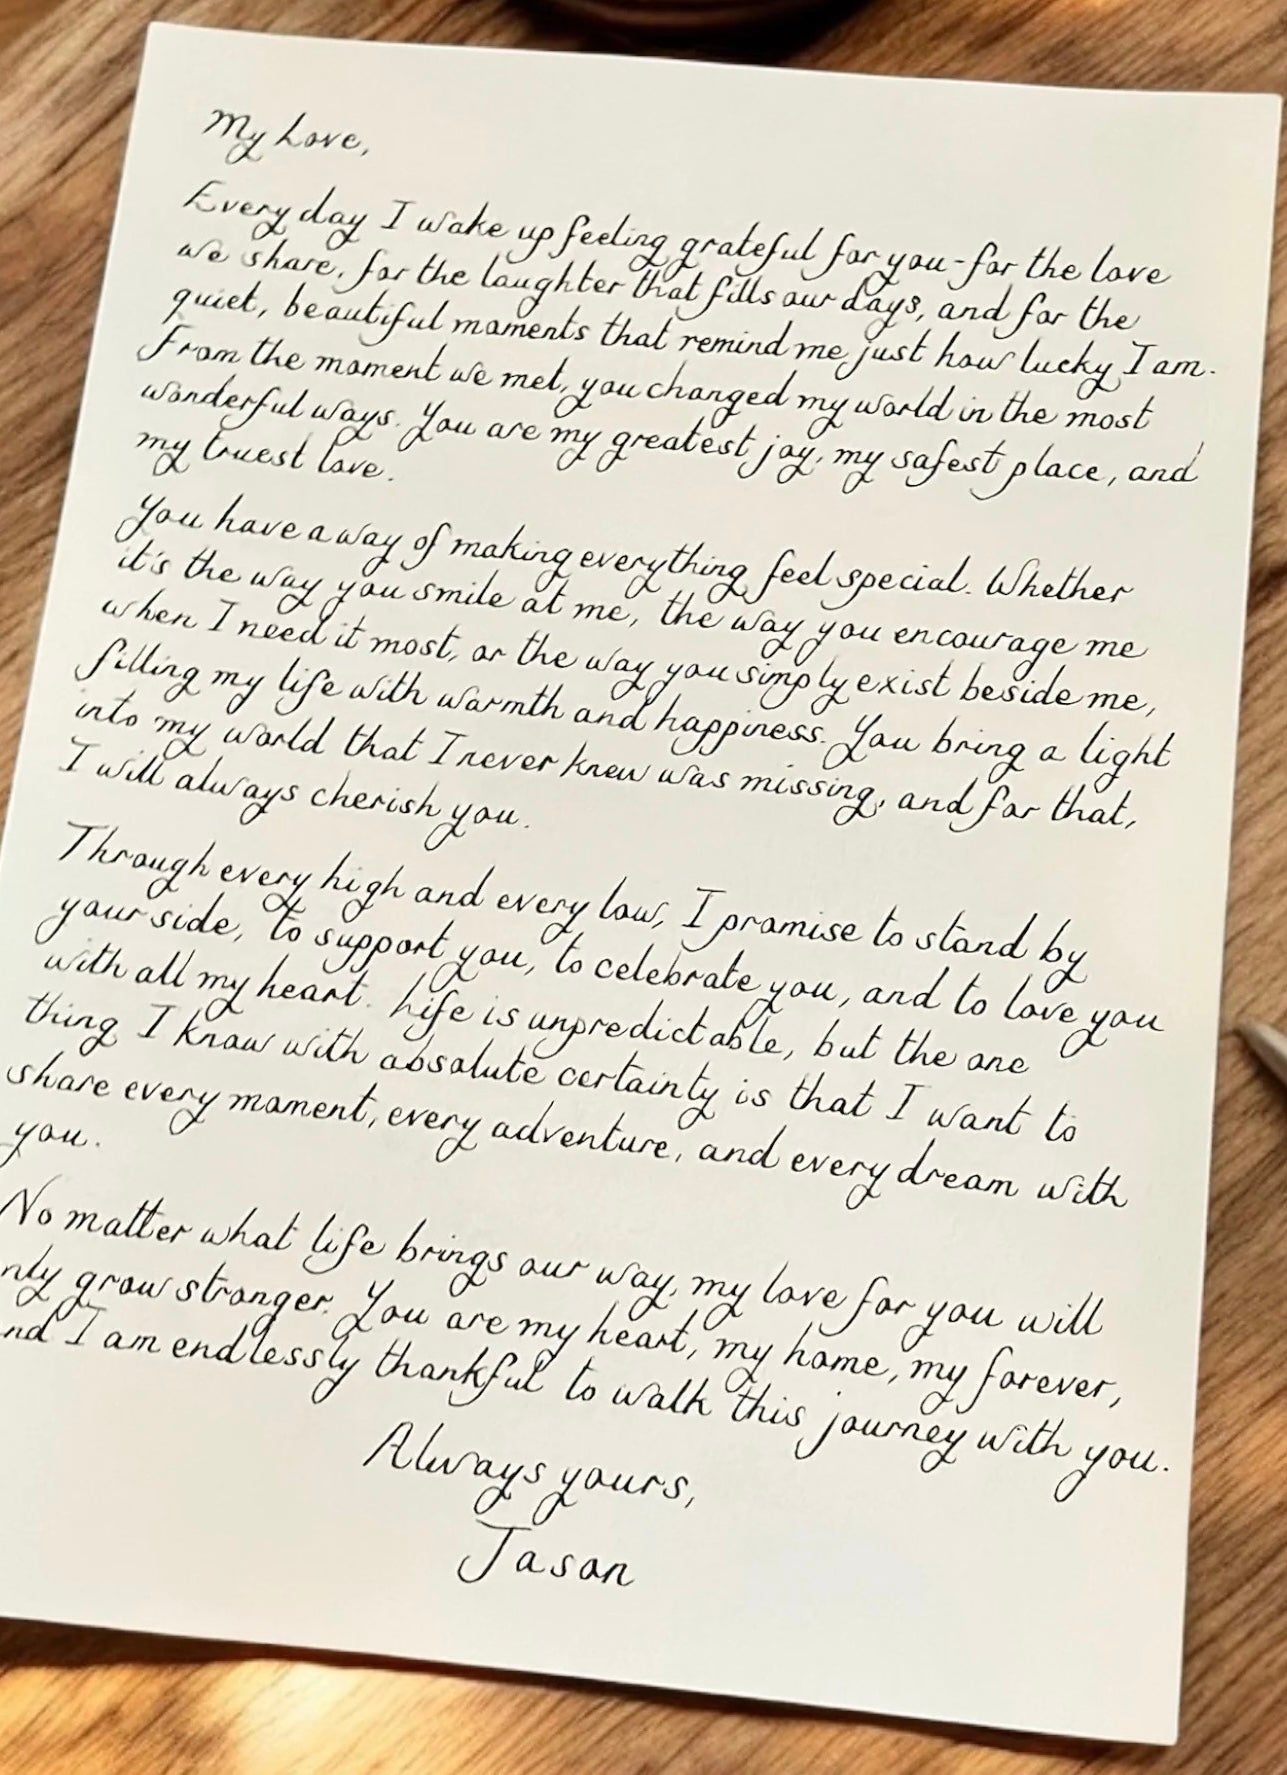 My Love,
Every day I wake up feeling grateful for you-for the love
we share, for the laughter that fills our days, and for the
quiet, beautiful moments that remind me just how lucky I am.
From the moment we met, you changed my world in the most
wonderful ways. You are my greatest joy, my safest place, and
my truest love.
You have a way of making everything feel special. Whether
it's the way you smile at me, the way you encourage me
when I need it most, or the way you simply exist beside me,
filling my life with warmth and happiness. You bring a light
into my world that I never knew was missing, and for that,
I will always cherish you.
Through every high and every low, I promise to stand by
your side, to support you, to celebrate you, and to love you
with all my heart. Life is unpredictable, but the one
thing I know with absolute certainty is that I want to
share every moment, every adventure, and every dream with
you.
No matter what life brings our way, my love for you will
nly grow stronger. You are my heart, my home, my forever,
nd I am endlessly thankful to walk this journey with you.
Always yours,
Jason